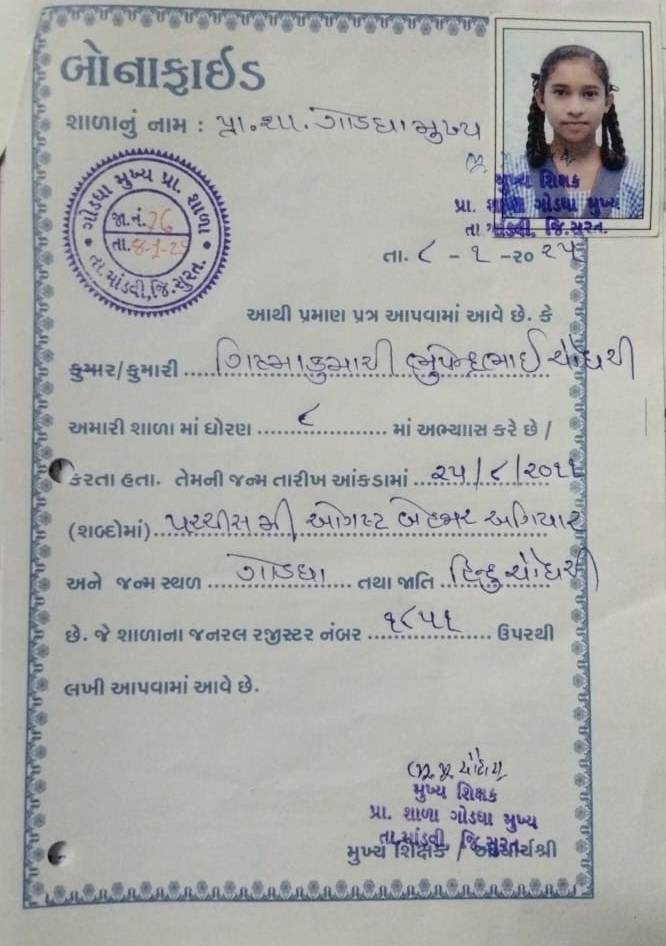 બોનાફાઈડ
શાળાનું નામ : પ્રા.શા. ગોડધા મુખ્ય
મુખ્ય શિક્ષક
પ્રા. શાળા ગોડધા મુખ્ય
તા. માંડવી, જિ.સુરત.
ગોડધા મુખ્ય પ્રા. શાળા
જા.નં. 26
તા. 8-1-25
તા. માંડવી, જિ. સુરત.
તા. ૮ - ૧ - ૨૦ ૨૫
આથી પ્રમાણ પત્ર આપવામાં આવે છે. કે
કુમાર/કુમારી ..... ભુપેન્દ્રભાઈ ચૌધરી
અમારી શાળા માં ધોરણ ..... ૮ ..... માં અભ્યાસ કરે છે /
કરતા હતા. તેમની જન્મ તારીખ આંકડામાં ..... ૨૫/૮/૨૦૧૧
(શબ્દોમાં)..... પચ્ચીસમી ઓગસ્ટ બેહજાર અગિયાર
અને જન્મ સ્થળ ..... ગોડધા ..... તથા જાતિ ..... હિન્દુ ચૌધરી
છે. જે શાળાના જનરલ રજીસ્ટર નંબર ..... ૧૮૫૧ ..... ઉપરથી
લખી આપવામાં આવે છે.
મુખ્ય શિક્ષક
પ્રા. શાળા ગોડધા મુખ્ય
તા.માંડવી, જિ.સુરત.
મુખ્ય શિક્ષક / આચાર્યશ્રી